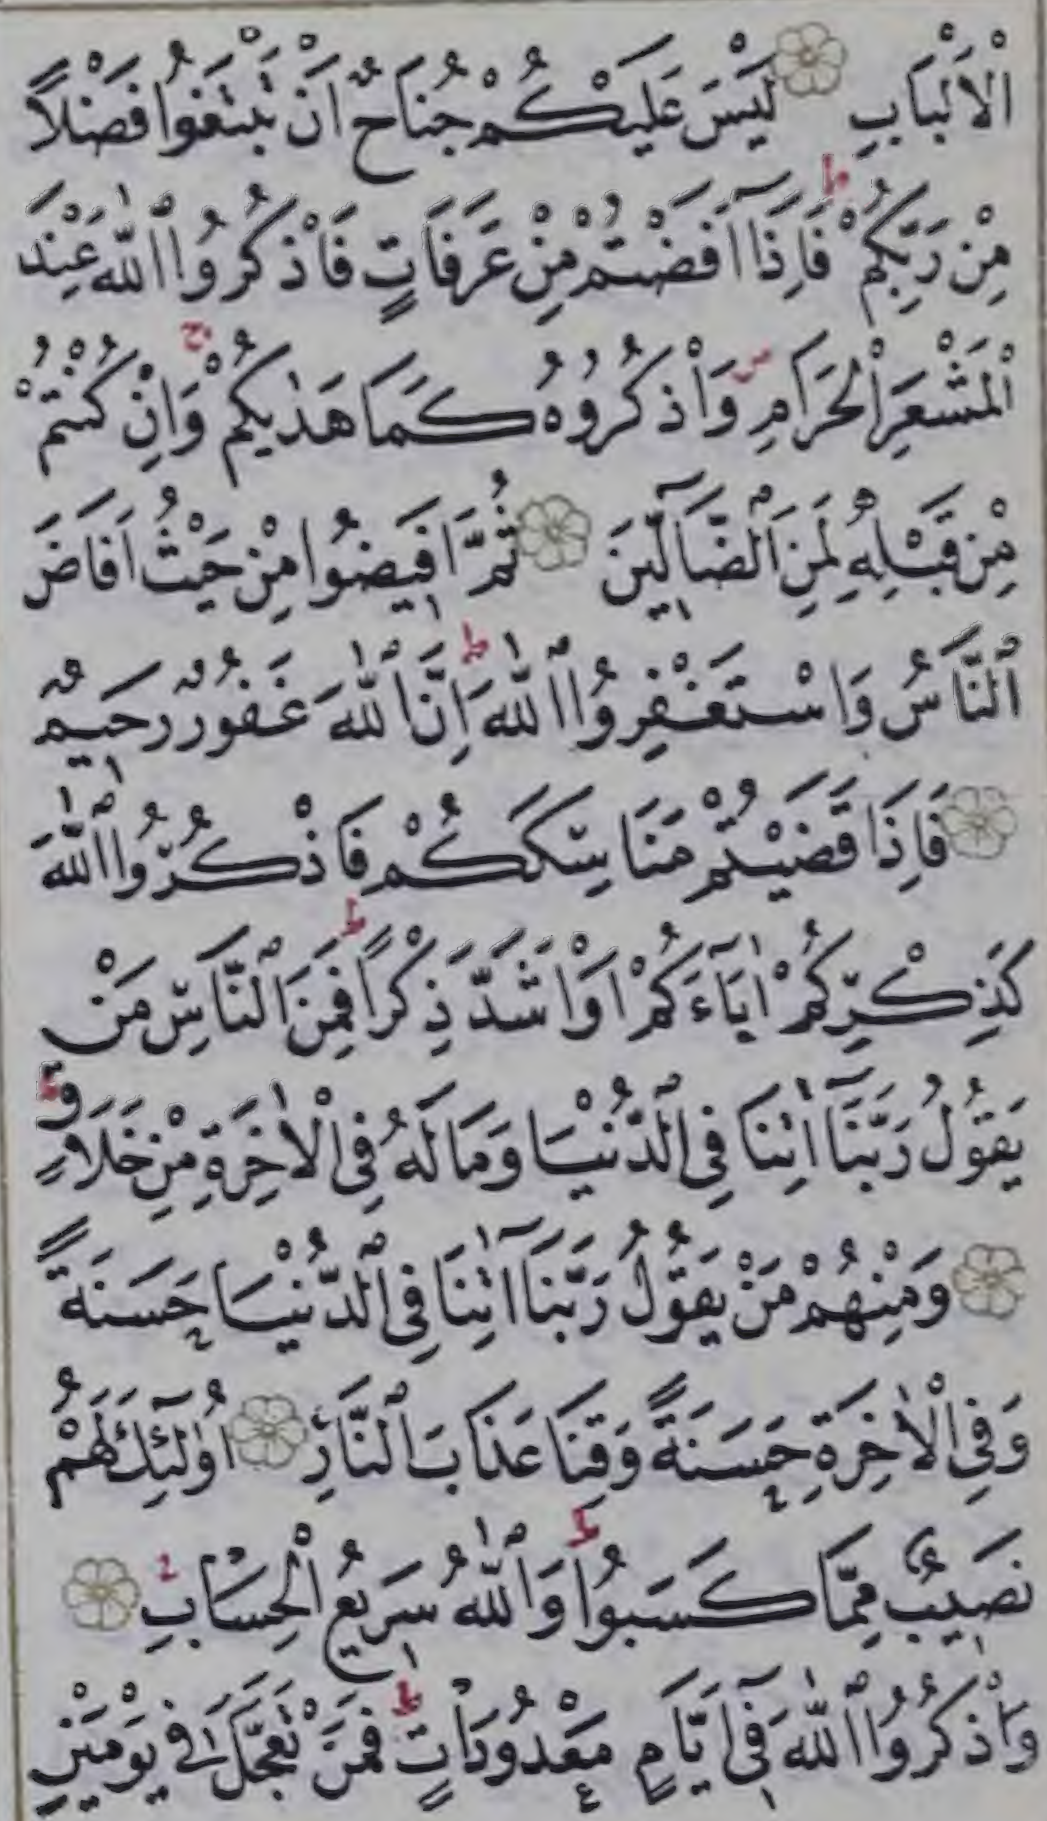 الْاَلْبَابِ لَيْسَ عَلَيْكُمْ جُنَاحٌ اَنْ تَبْتَغُوا فَضْلًا
مِنْ رَبِّكُمْ ط فَاِذَٓا اَفَضْتُمْ مِنْ عَرَفَاتٍ فَاذْكُرُوا اللّٰهَ عِنْدَ
الْمَشْعَرِ الْحَرَامِ ص وَاذْكُرُوهُ كَمَا هَدٰيكُمْ ج وَاِنْ كُنْتُمْ
مِنْ قَبْلِهِ لَمِنَ الضَّٓالِّينَ ثُمَّ اَفِيضُوا مِنْ حَيْثُ اَفَاضَ
النَّاسُ وَاسْتَغْفِرُوا اللّٰهَ ط اِنَّ اللّٰهَ غَفُورٌ رَحِيمٌ
فَاِذَا قَضَيْتُمْ مَنَاسِكَكُمْ فَاذْكُرُوا اللّٰهَ
كَذِكْرِكُمْ اٰبَٓاءَكُمْ اَوْ اَشَدَّ ذِكْرًا ط فَمِنَ النَّاسِ مَنْ
يَقُولُ رَبَّنَٓا اٰتِنَا فِى الدُّنْيَا وَمَا لَهُ فِى الْاٰخِرَةِ مِنْ خَلَاقٍ
وَمِنْهُمْ مَنْ يَقُولُ رَبَّنَٓا اٰتِنَا فِى الدُّنْيَا حَسَنَةً
وَفِى الْاٰخِرَةِ حَسَنَةً وَقِنَا عَذَابَ النَّارِ اُولٰٓئِكَ لَهُمْ
نَصِيبٌ مِمَّا كَسَبُوا ط وَاللّٰهُ سَرِيعُ الْحِسَابِ
وَاذْكُرُوا اللّٰهَ فِٓى اَيَّامٍ مَعْدُودَاتٍ ط فَمَنْ تَعَجَّلَ فِى يَوْمَيْنِ